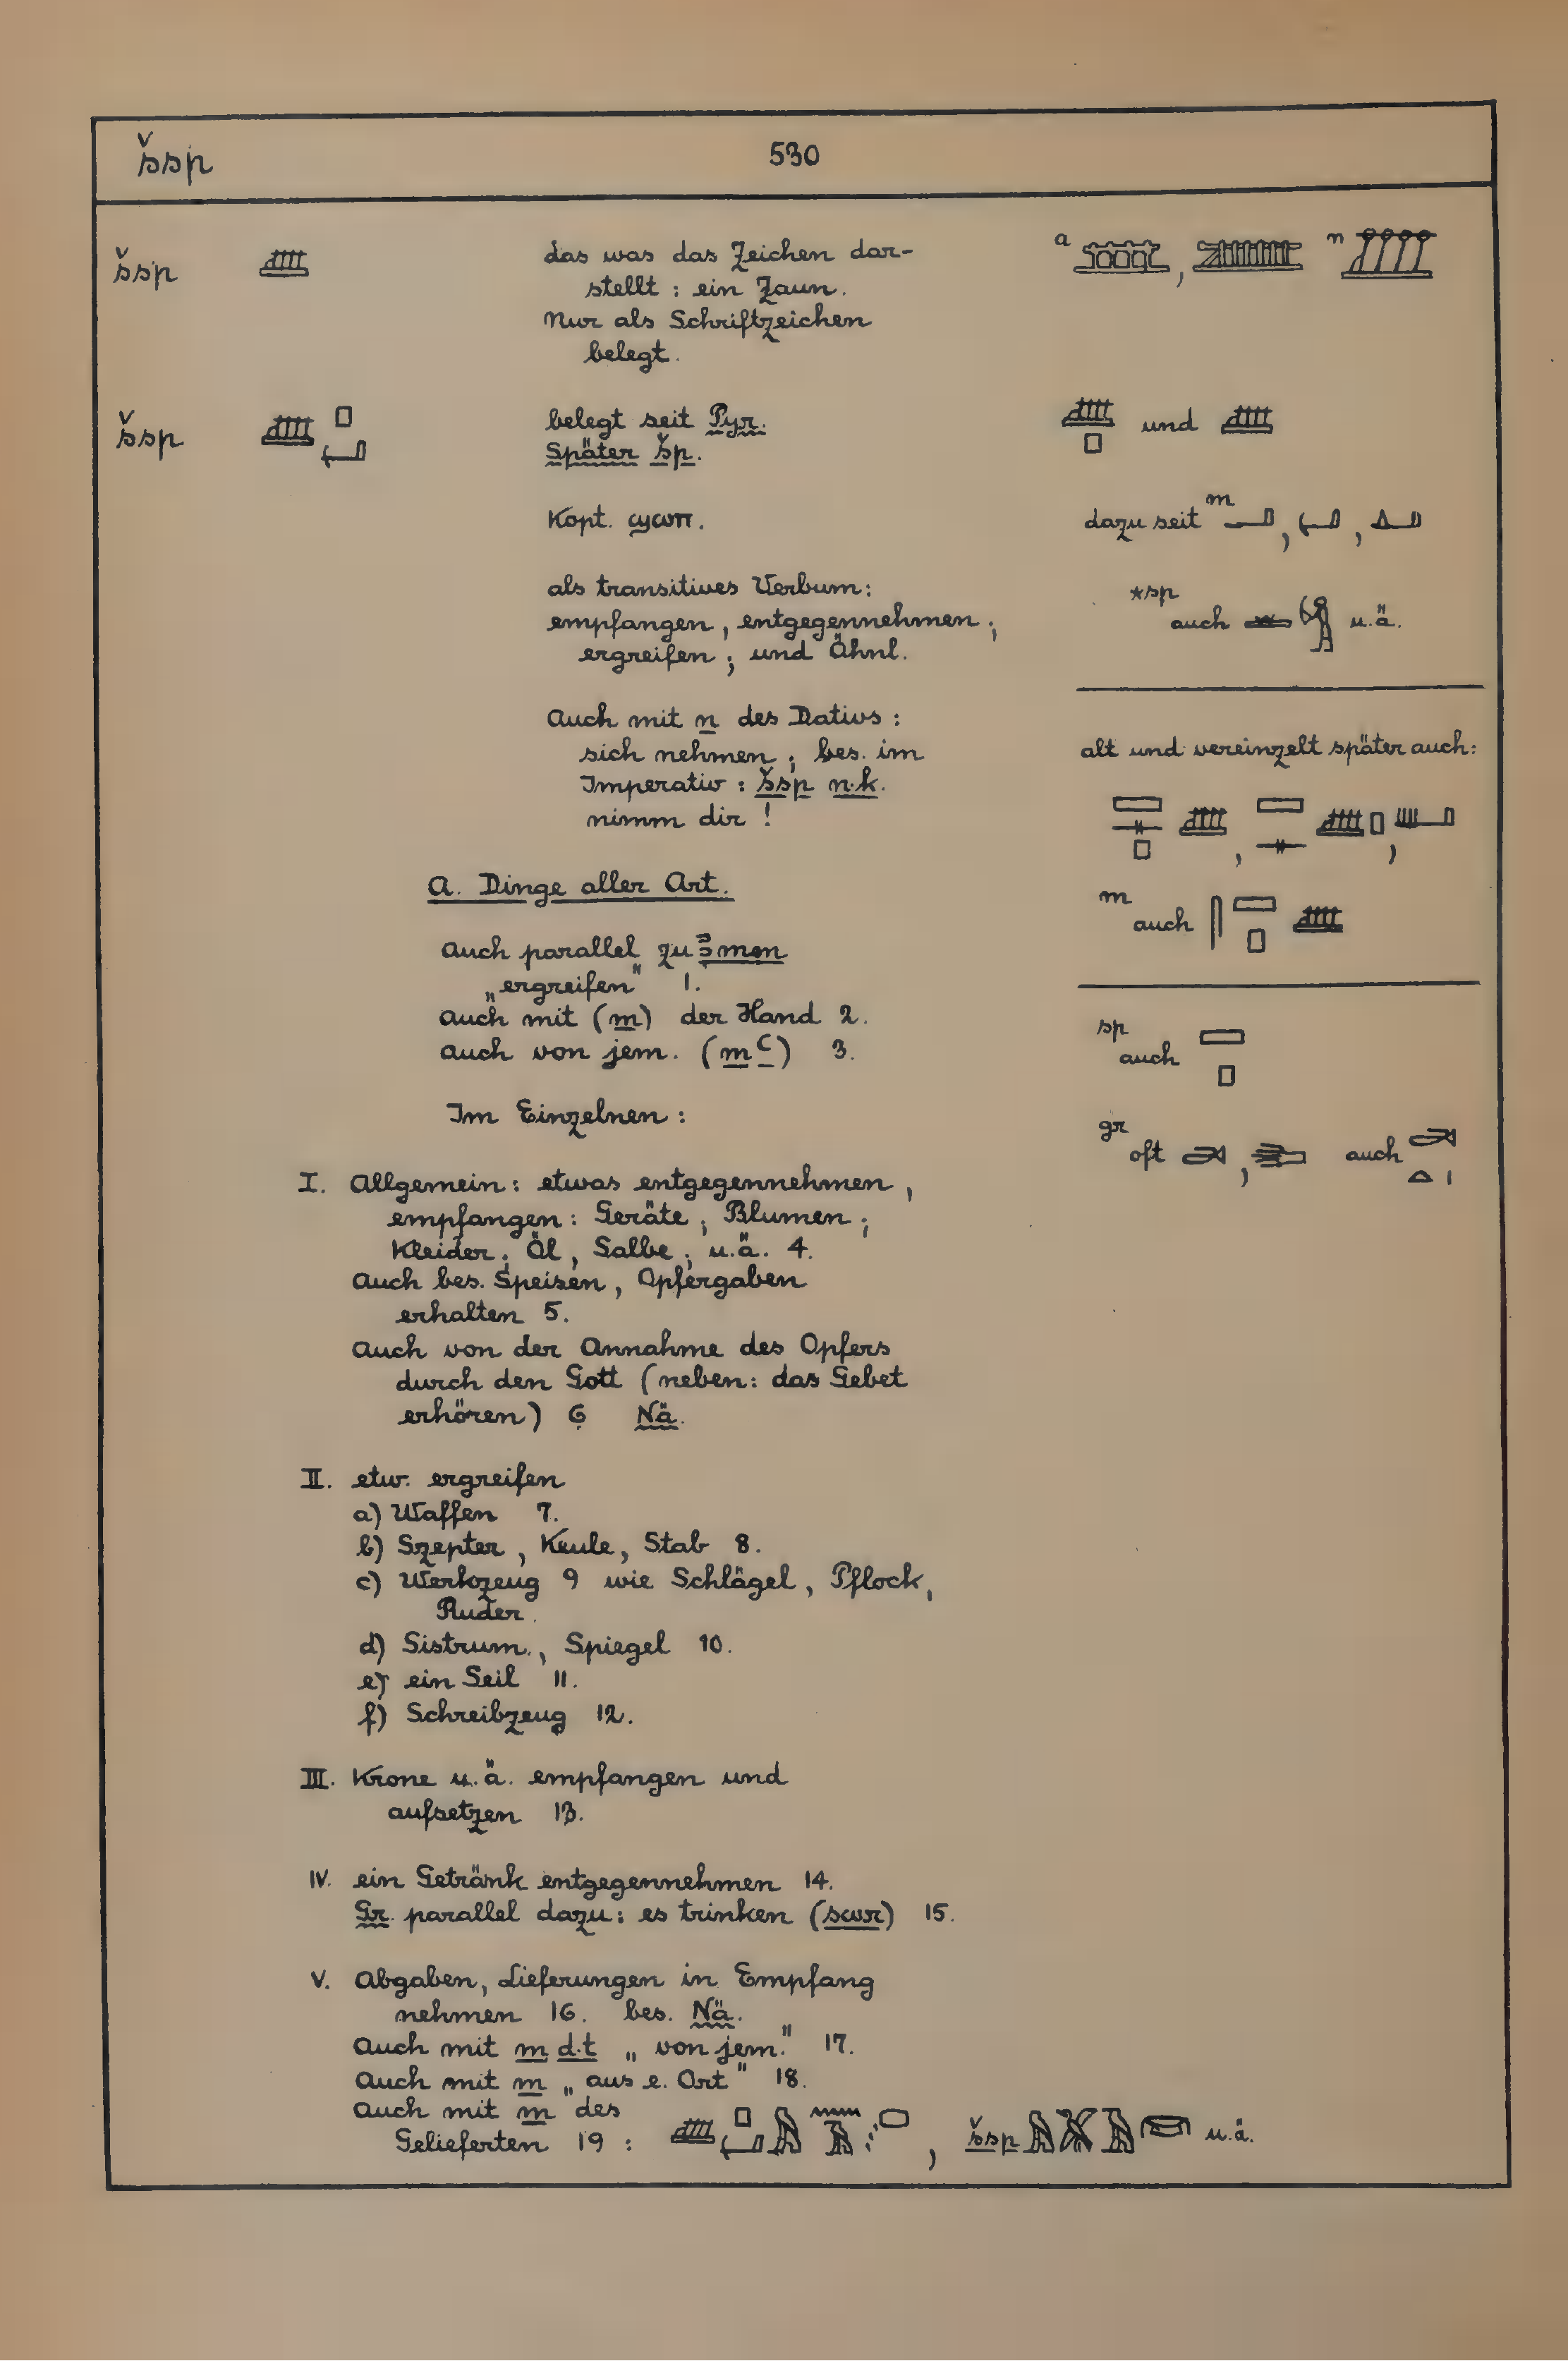 šsp 530
šsp das was das Zeichen dar-
stellt : ein Zaun.
Nur als Schriftzeichen
belegt.
a , n
šsp belegt seit Pyr.
Später šp.
Kopt. ϣωπ.
als transitives Verbum:
empfangen, entgegennehmen;
ergreifen; und Ähnl.
Auch mit n des Dativs:
sich nehmen; bes. im
Imperativ : šsp n·k.
nimm dir !
und
dazu seit m , ,
*sp auch u.ä.
alt und vereinzelt später auch:
, ,
m auch
sp auch
gr oft , auch
A. Dinge aller Art.
Auch parallel zu ꜣmm
„ergreifen" 1.
Auch mit (m) der Hand 2.
Auch von jem. (m ꜥ) 3.
Im Einzelnen :
I. Allgemein: etwas entgegennehmen,
empfangen: Geräte; Blumen;
Kleider; Öl, Salbe; u.ä. 4.
Auch bes. Speisen, Opfergaben
erhalten 5.
Auch von der Annahme des Opfers
durch den Gott (neben: das Gebet
erhören) 6 Nä.
II. etw. ergreifen
a) Waffen 7.
b) Szepter, Keule, Stab 8.
c) Werkzeug 9 wie Schlägel, Pflock,
Ruder.
d) Sistrum, Spiegel 10.
e) ein Seil 11.
f) Schreibzeug 12.
III. Krone u.ä. empfangen und
aufsetzen 13.
IV. ein Getränk entgegennehmen 14.
Gr. parallel dazu: es trinken (swr) 15.
V. Abgaben, Lieferungen in Empfang
nehmen 16. bes. Nä.
Auch mit m d·t „von jem." 17.
Auch mit m „aus e. Ort" 18.
Auch mit m des
Gelieferten 19 : , šsp u.ä.